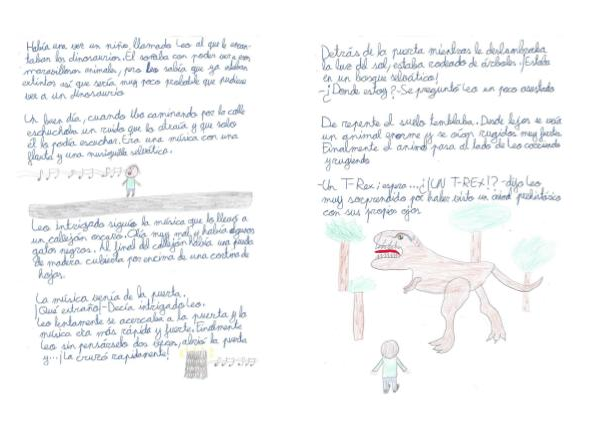 Había una vez un niño llamado Leo al que le encan-
taban los dinosaurios. Él soñaba con poder ver a esos
maravillosos animales, pero Leo sabía que ya estaban
extintos así que sería muy poco probable que pudiese
ver a un dinosaurio
Un buen día, cuando iba caminando por la calle
escuchaba un ruido que lo atraía y que solo
él lo podía escuchar. Era una música con una
flauta y una musiquilla selvática.
Leo intrigado siguió la música que lo llevó a
un callejón oscuro. Olía muy mal, y había algunos
gatos negros. Al final del callejón había una puerta
de madera cubierta por encima de una cortina de
hojas.
La música venía de la puerta.
¡Qué extraño!-Decía intrigado Leo.
Leo lentamente se acercaba a la puerta y la
música era más rápida y fuerte. Finalmente
Leo sin pensárselo dos veces, abrió la puerta
y...¡La cruzó rapidamente!
Detrás de la puerta mientras le deslumbraba
la luz del sol, estaba rodeado de árboles. ¡Estaba
en un bosque selvático!
-¿Dónde estoy?-Se preguntó Leo un poco asustado
De repente el suelo temblaba. Desde lejos se veía
un animal enorme y se oían rugidos muy fuertes.
Finalmente el animal paró al lado de Leo
y rugiendo
-Un T-Rex ¡espera...¿¡UN T-REX!?-dijo Leo
muy sorprendido por haber visto un animal prehistórico
con sus propios ojos.